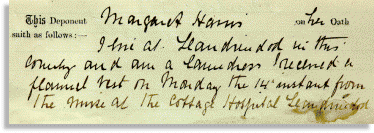 This Deponent Margaret Harris on her Oath
saith as follows:—
I live at Llandrindod in this
County and am a Laundress I received a
flannel vest on Monday the 14th instant from
the nurse at the Cottage Hospital Llandrindod